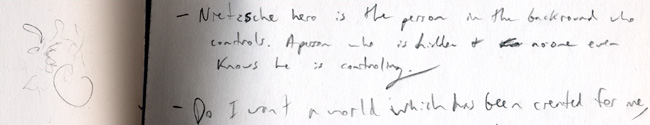 - Nietzsche hero is the person in the backround who
controls. A person who is hidden & no one even
knows he is controling.
- Do I want a world which has been created for me,